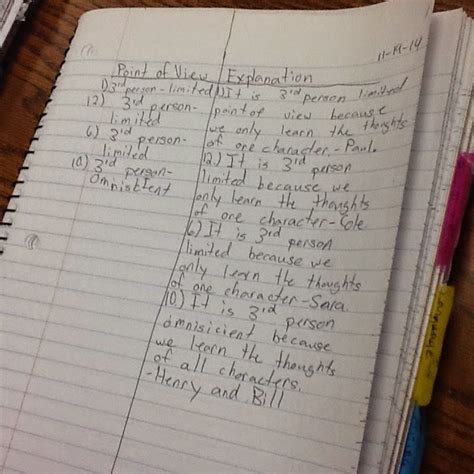 11-19-14
Point of View
1) 3rd person-limited
12) 3rd person-
limited
6) 3rd person-
limited
10) 3rd person-
Omniscient
Explanation
1) It is 3rd person limited
point of view because
we only learn the thoughts
of one character.-Paula
12.) It is 3rd person
limited because we
only learn the thoughts
of one character-Cole
6) It is 3rd person
limited because we
only learn the thoughts
of one character-Sara
10) It is 3rd person
omnisicient because
we learn the thoughts
of all characters.
-Henry and Bill
Language